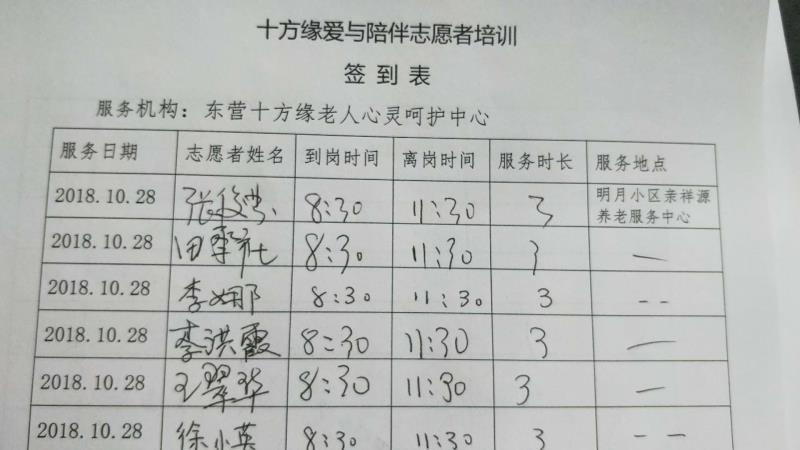 十方缘爱与陪伴志愿者培训
签到表
服务机构：东营十方缘老人心灵呵护中心
服务日期 志愿者姓名 到岗时间 离岗时间 服务时长 服务地点
2018.10.28 张俊 8:30 11:30 3 明月小区亲祥源
养老服务中心
2018.10.28 田 8:30 11:30 3 —
2018.10.28 李娜 8:30 11:30 3 --
2018.10.28 李洪霞 8:30 11:30 3 —
2018.10.28 王翠华 8:30 11:30 3 —
2018.10.28 徐小英 8:30 11:30 3 --